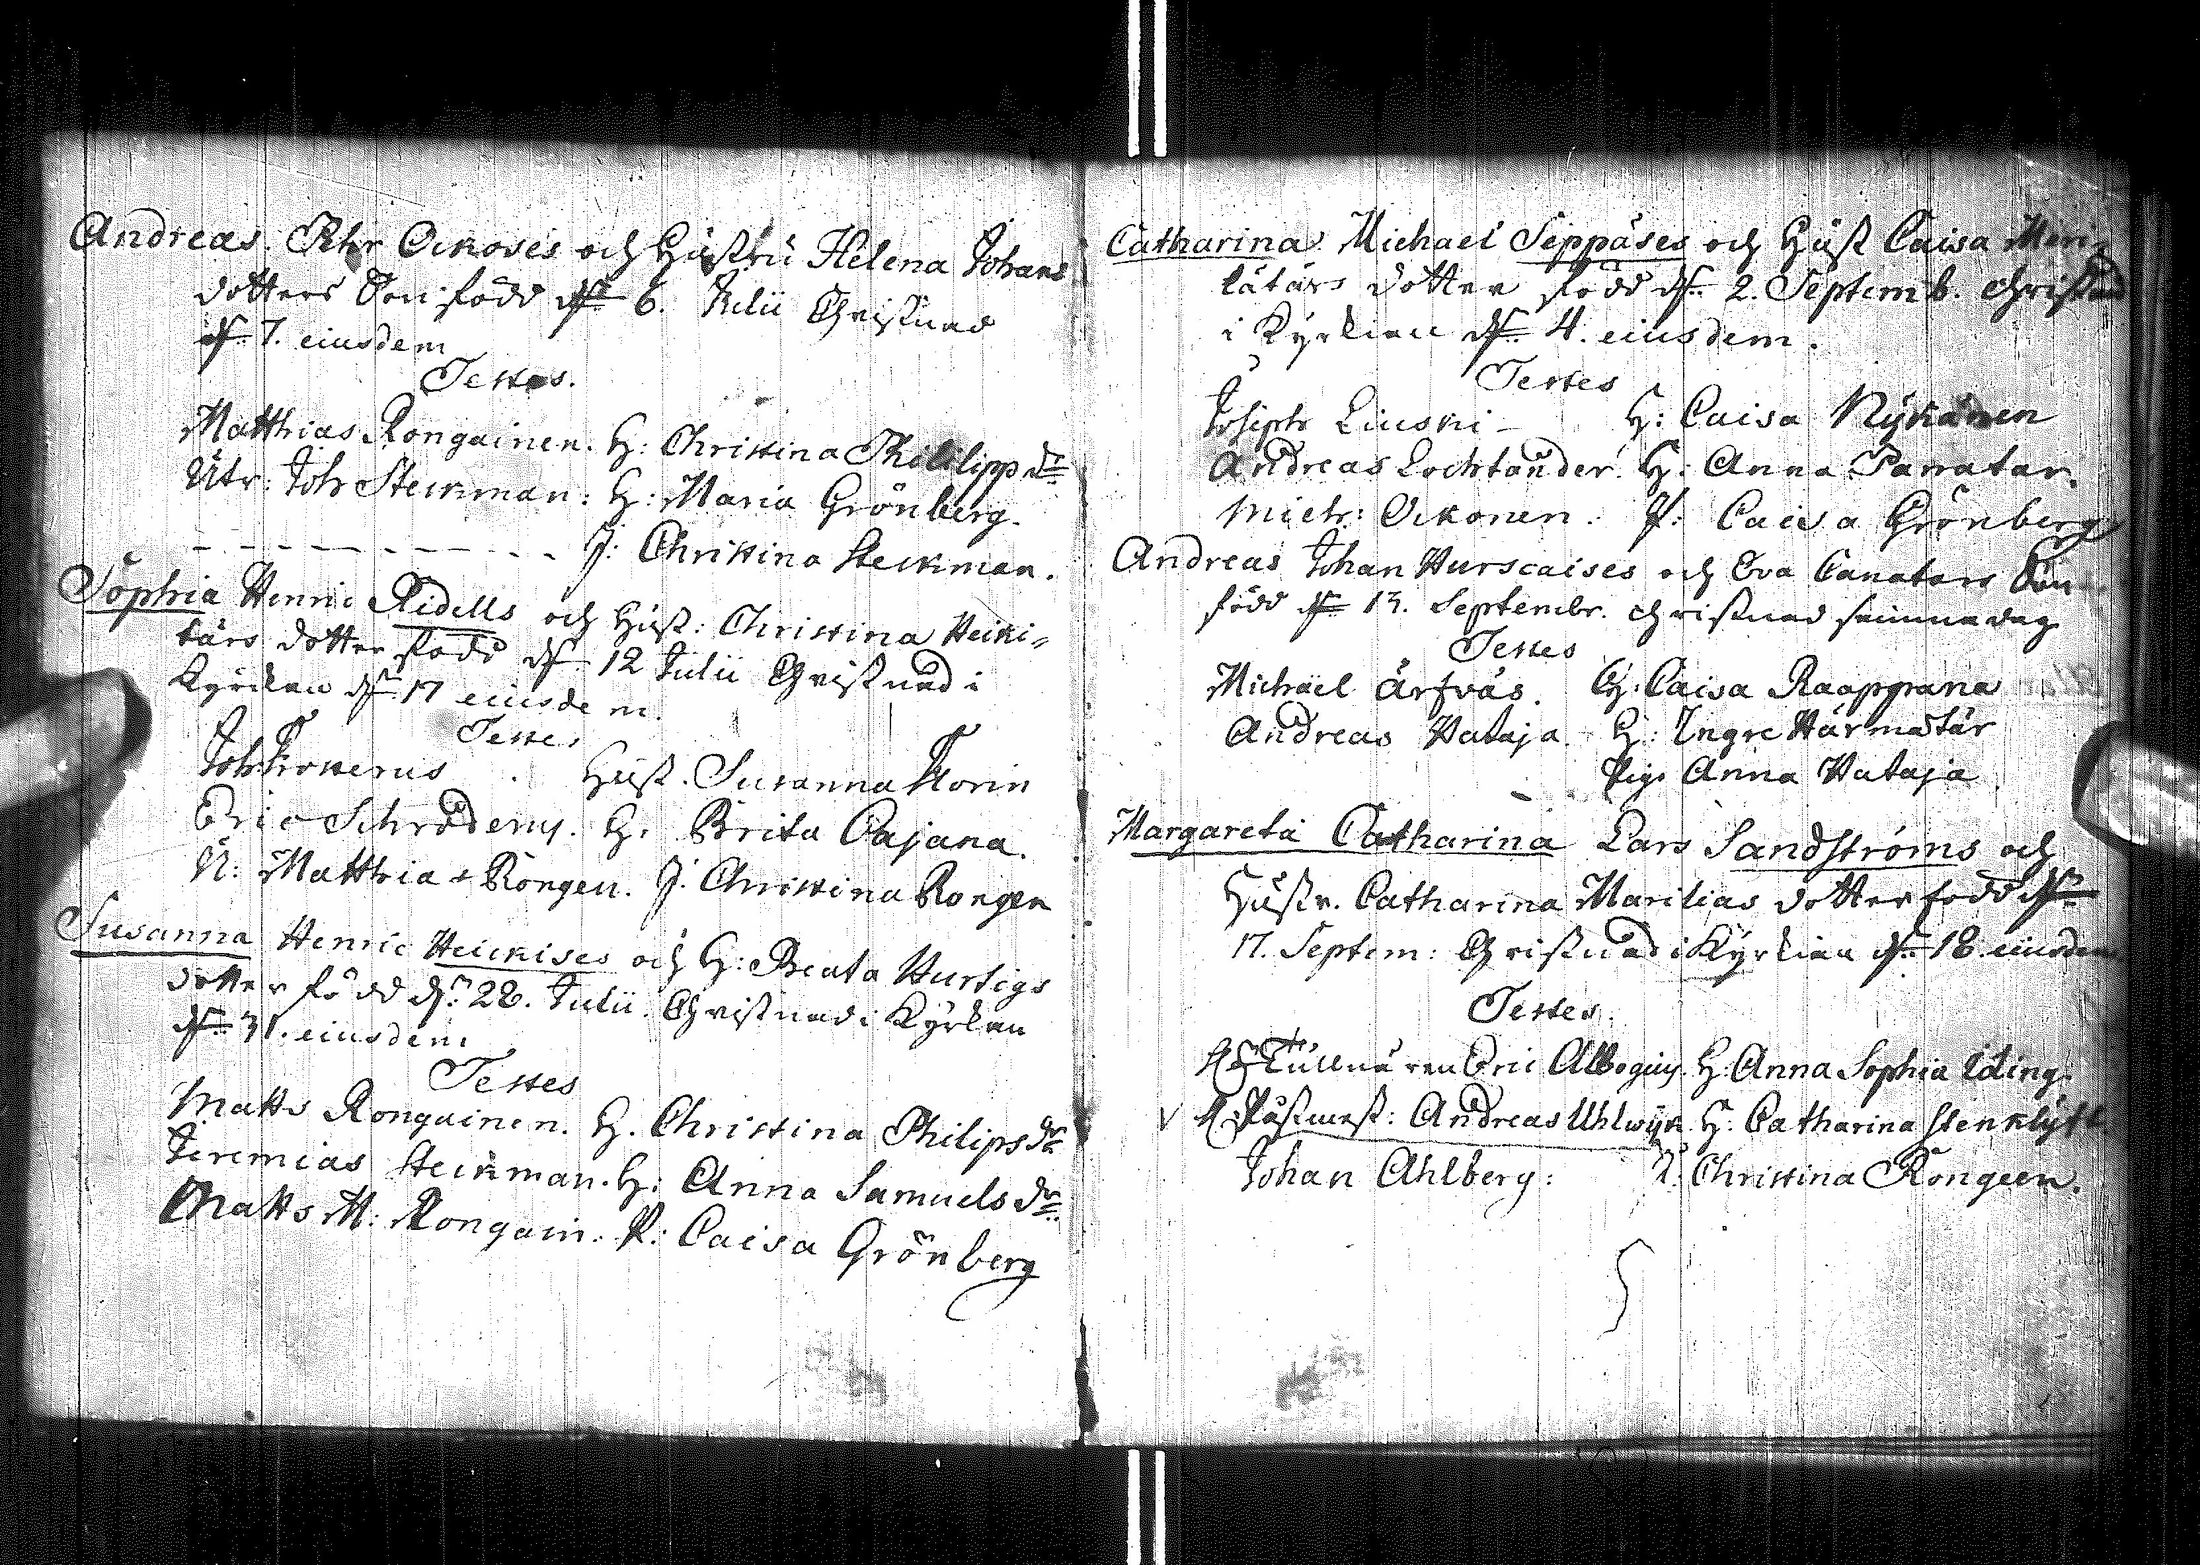 Andreas. Petr Oikoses och Hustru Helena Johans
dotters Son född d. 6. Julii Christnad
d. 7. eiusdem
Testes.
Matthias Rongainen. H: Christina Phililipp dr
Utr: Joh Steckman: H: Maria Grönberg.
J: Christina Steckman.
Sophia Henric Ridells och Hust: Christina Heiki-
tärs dotter född d. 12 Julii Christnad i
Kyrckan d. 17 eiusdem.
Testes
Hust. Susanna Florin
Eric Schroderus. H: Brita Cajana.
U: Matthias Rongen. J: Christina Rongen
Susanna Henric Heickises och H: Beata Hurtigs
dotter född d. 28. Julii Christnad i Kyrckan
d. 31. eiusdem
Testes
Matts Rongainen. H. Christina Philips dr
Jeremias Steckman. H: Anna Samuels dr
Matts M: Rongain: P: Caisa Grönberg
Catharina Michael Seppäses och Hust Caisa Meri-
dotter född d. 2. Septemb. Christnad
i Kyrckan d. 4. eiusdem.
Testes
Joseph Liuski H: Caisa Nykänen
Andreas Lochtander. H: Anna Parratar.
Mich: Oikonen. P: Caisa Grönberg
Andreas Johan Hurscaises och Eva Canatars Son
född d. 13. Septembr. Christnad samma dag
Testes
Michael Ärfväs. H: Caisa Raappana
Andreas Hataja. H: Ingre Härmätär
Pig: Anna Hataja
Margareta Catharina Lars Sandströms och
Hustr. Catharina Marilias dotter född d.
17. Septem: Christnad i Kyrckan d. 18. eiusdem
Testes.
Tullnären Eric Alboguis. H: Anna Sophia Iding.
Påstmest: Andreas Uhlwijk H: Catharina
Johan Ahlberg: Christina Rongeen.